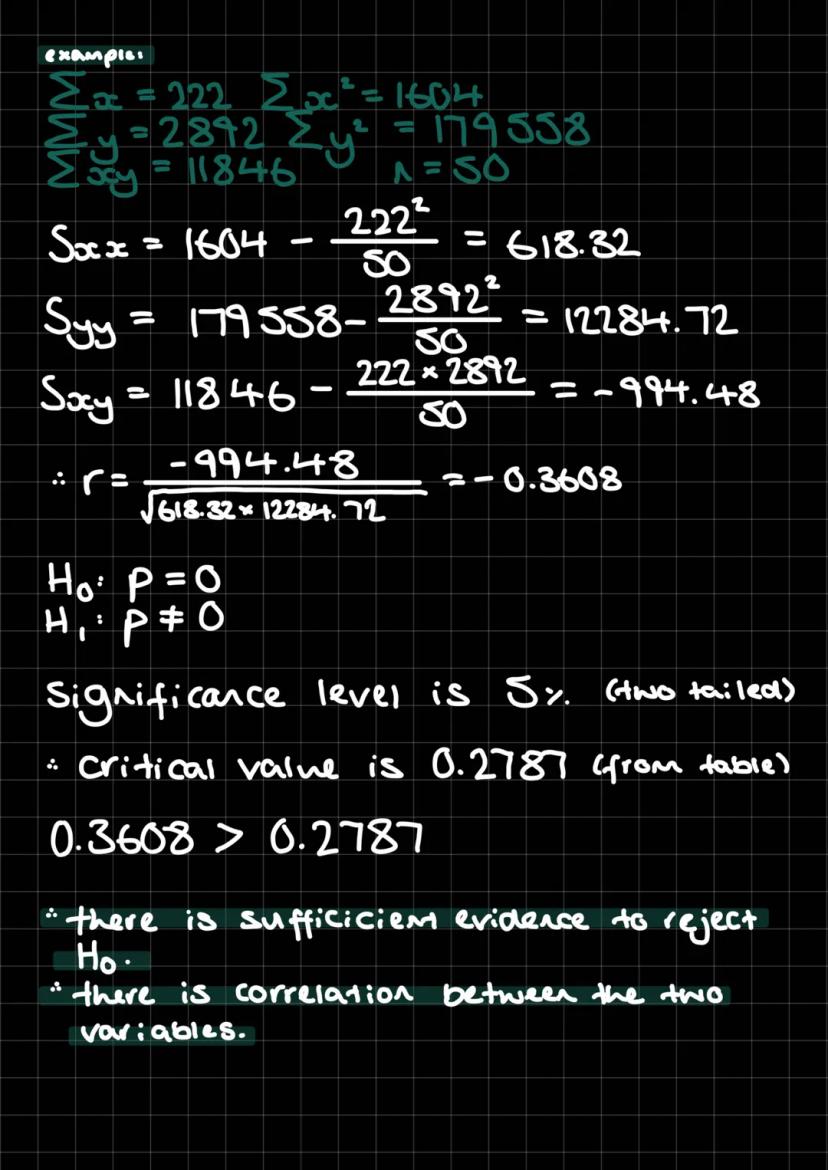 example:
Σx = 222 Σx² = 1604
Σy = 2892 Σy² = 179558
Σxy = 11846 n = 50
Sxx = 1604 - 222²/50 = 618.32
Syy = 179558 - 2892²/50 = 12284.72
Sxy = 11846 - 222 × 2892/50 = -994.48
∴ r = -994.48/√618.32 × 12284.72 = -0.3608
H₀: p = 0
H₁: p ≠ 0
Significance level is 5% (two tailed)
∴ critical value is 0.2787 (from table)
0.3608 > 0.2787
∴ there is sufficicient evidence to reject
H₀.
∴ there is correlation between the two
variables.